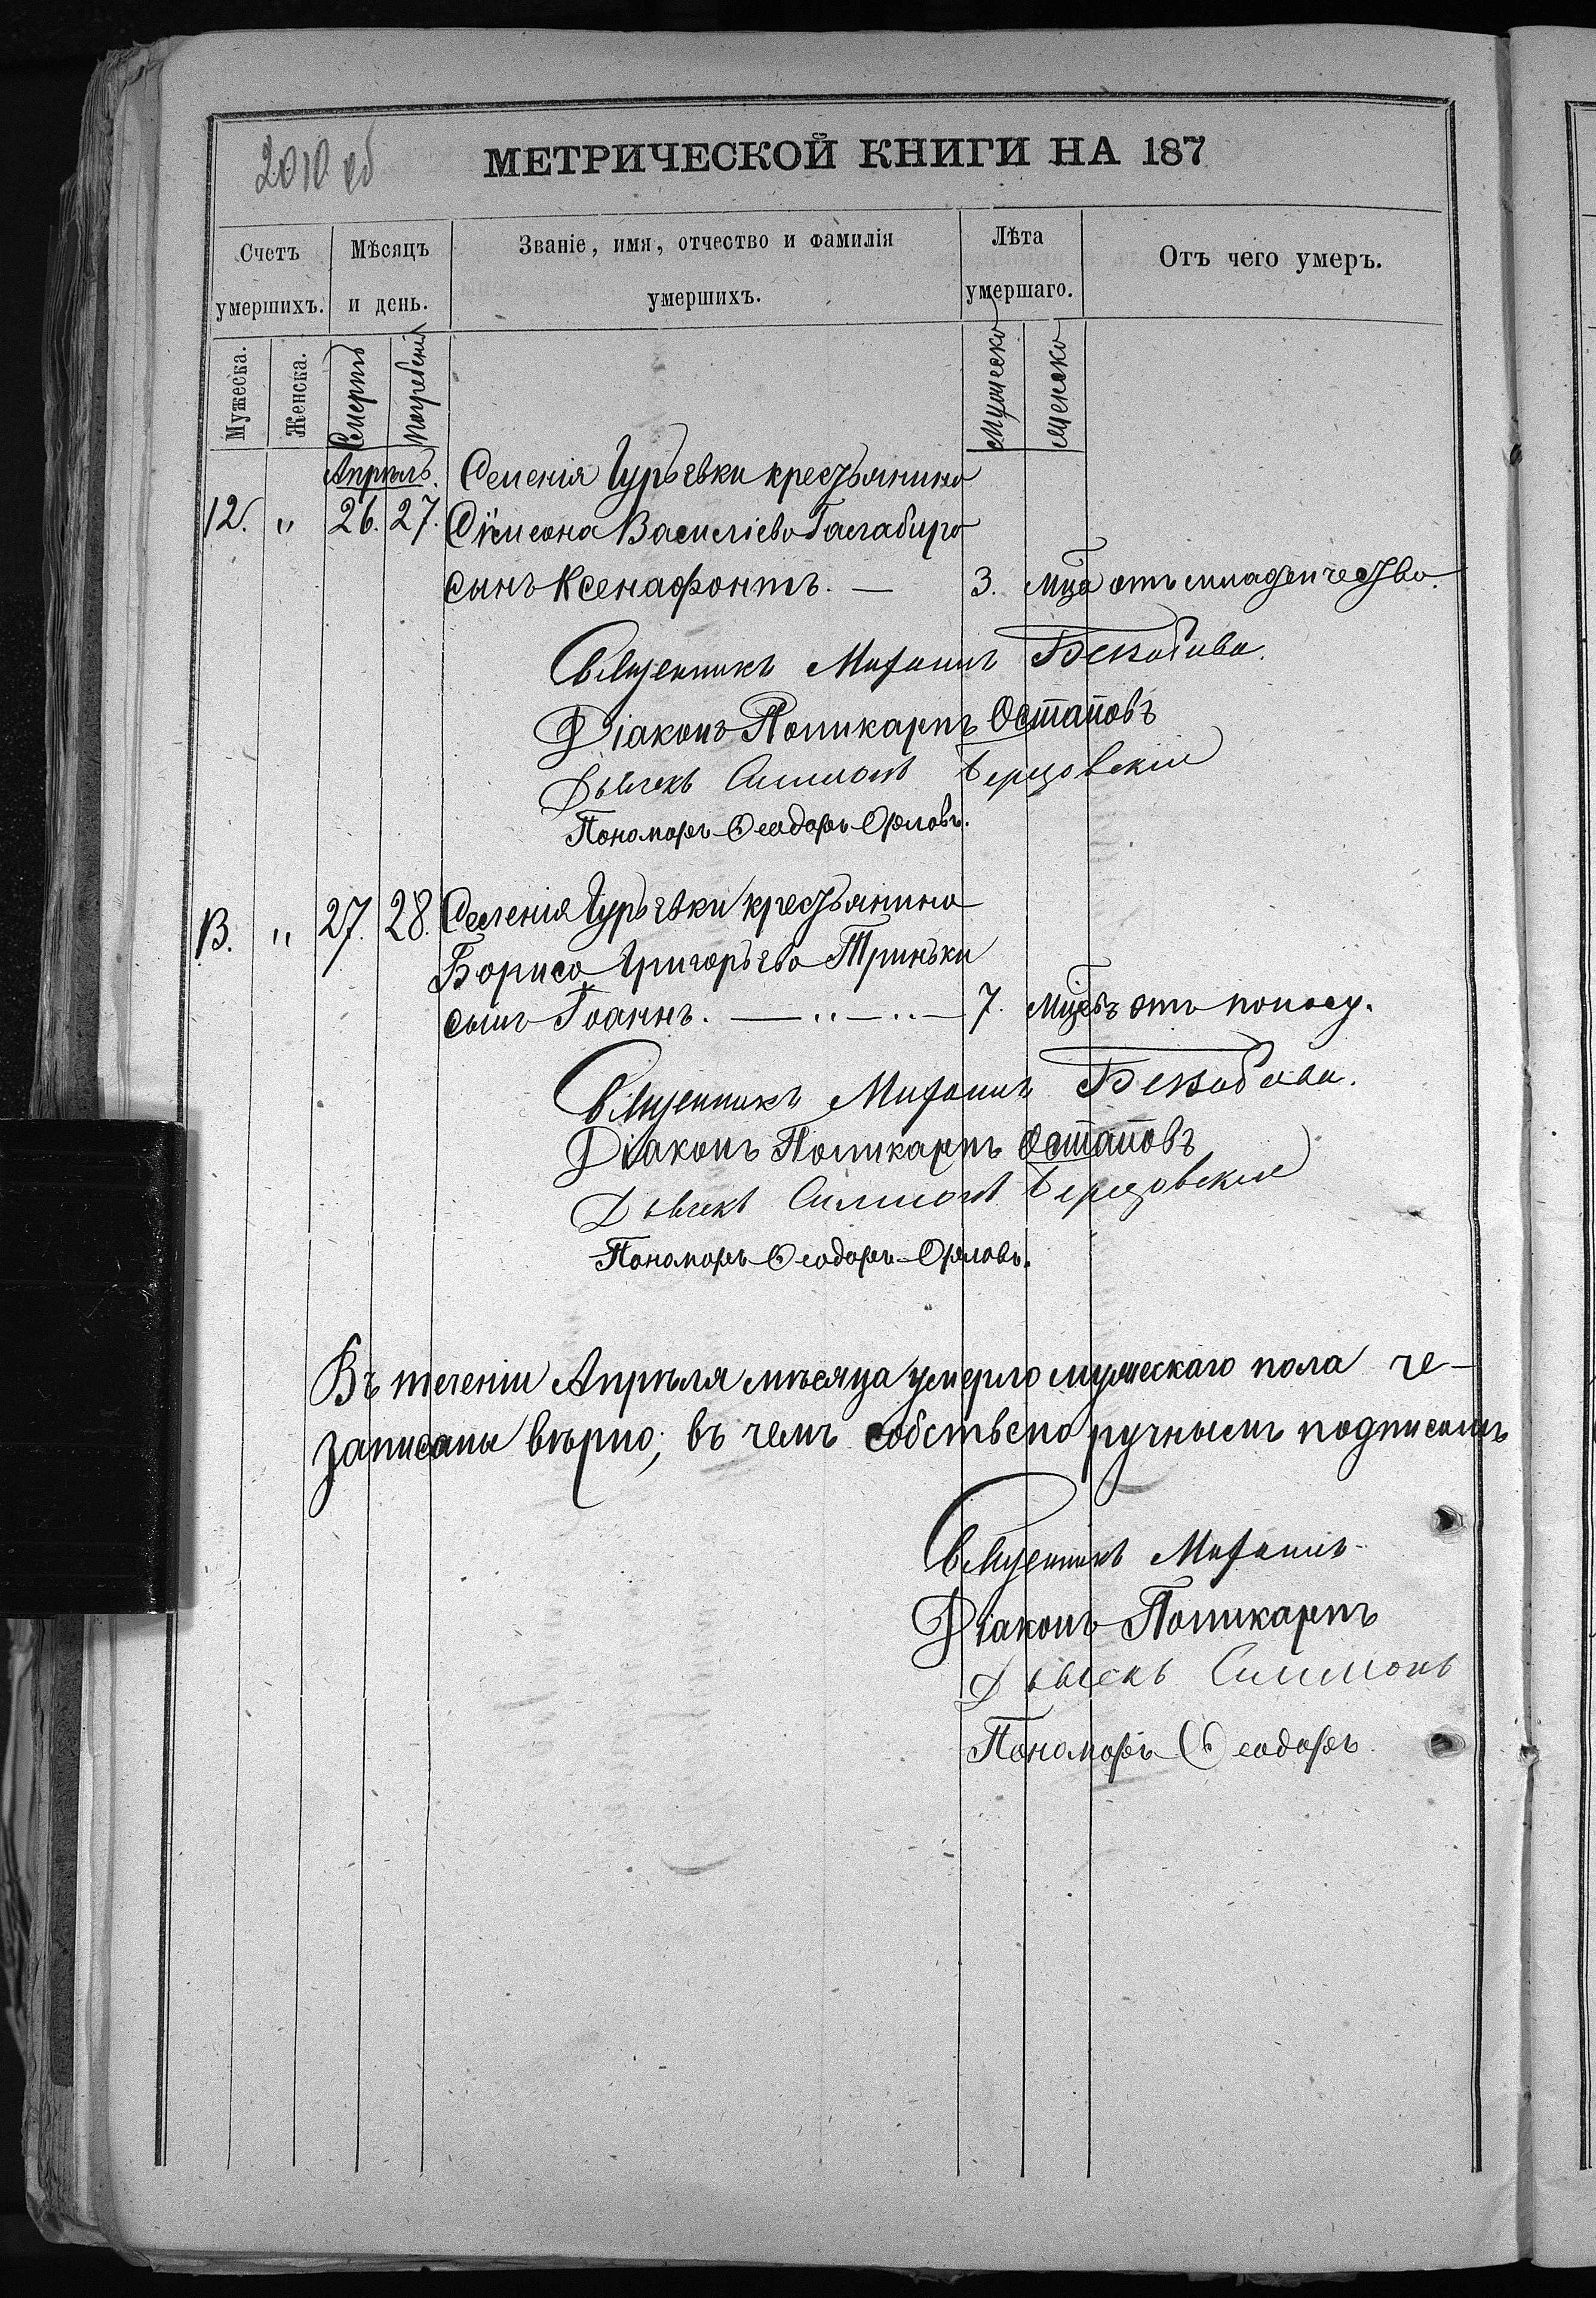 2010 об
МЕТРИЧЕСКОЙ КНИГИ НА 187
Счетъ умершихъ.
Мѣсяцъ и день.
Званіе, имя, отчество и фамилія умершихъ.
Лѣта умершаго.
Отъ чего умеръ.
Мужеска.
Женска.
Смерти
погребенія
Мужеска
Женска
Апрѣль. Селенія Гурьевки крестьянина
12. " 26. 27. Сѵмеона Василіева
сынъ Ксенафонтъ. — 3. мца отъ младенчества.
Священникъ
Діаконъ Поликарпъ Остаповъ
Дьячекъ Симеонъ Березовскій
Пономарь Ѳеодоръ Орловъ.
13. " 27. 28. Селенія Гурьевки крестьянина
Бориса Григорьева Триньки
сынъ Іоаннъ. — .. — .. — 7. мцевъ отъ поносу.
Священникъ
Діаконъ Поликарпъ Остаповъ
Дьячекъ Симеонъ Березовскій
Пономарь Ѳеодоръ Орловъ.
Въ теченіи Апрѣля мѣсяца умерло мужескаго пола че-
записаны вѣрно; въ чемъ собствено ручнымъ подписомъ
Священникъ
Діаконъ Поликарпъ
Дьячекъ Симеонъ
Пономарь Ѳеодоръ